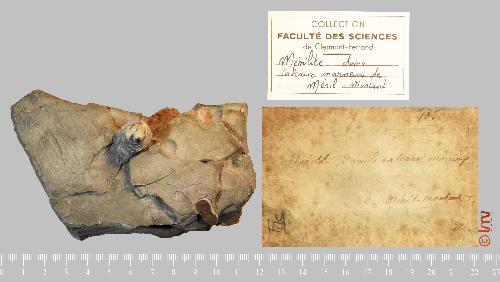 COLLECTION
FACULTÉ DES SCIENCES
de Clermont-Ferrand
Ménilite dans
calcaire marneux de
Ménil-Montant
Ménilite dans le calcaire marneux
de Ménil-montant
© lmv
0 1 2 3 4 5 6 7 8 9 10 11 12 13 14 15 16 17 18 19 20 21 22 23